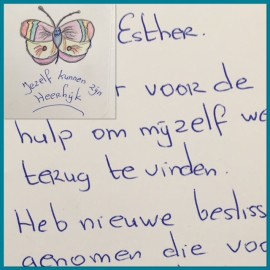 Jezelf kunnen zijn
Heerlijk
Esther.
voor de
hulp om mijzelf we
terug te vinden.
Heb nieuwe besliss
genomen die voo